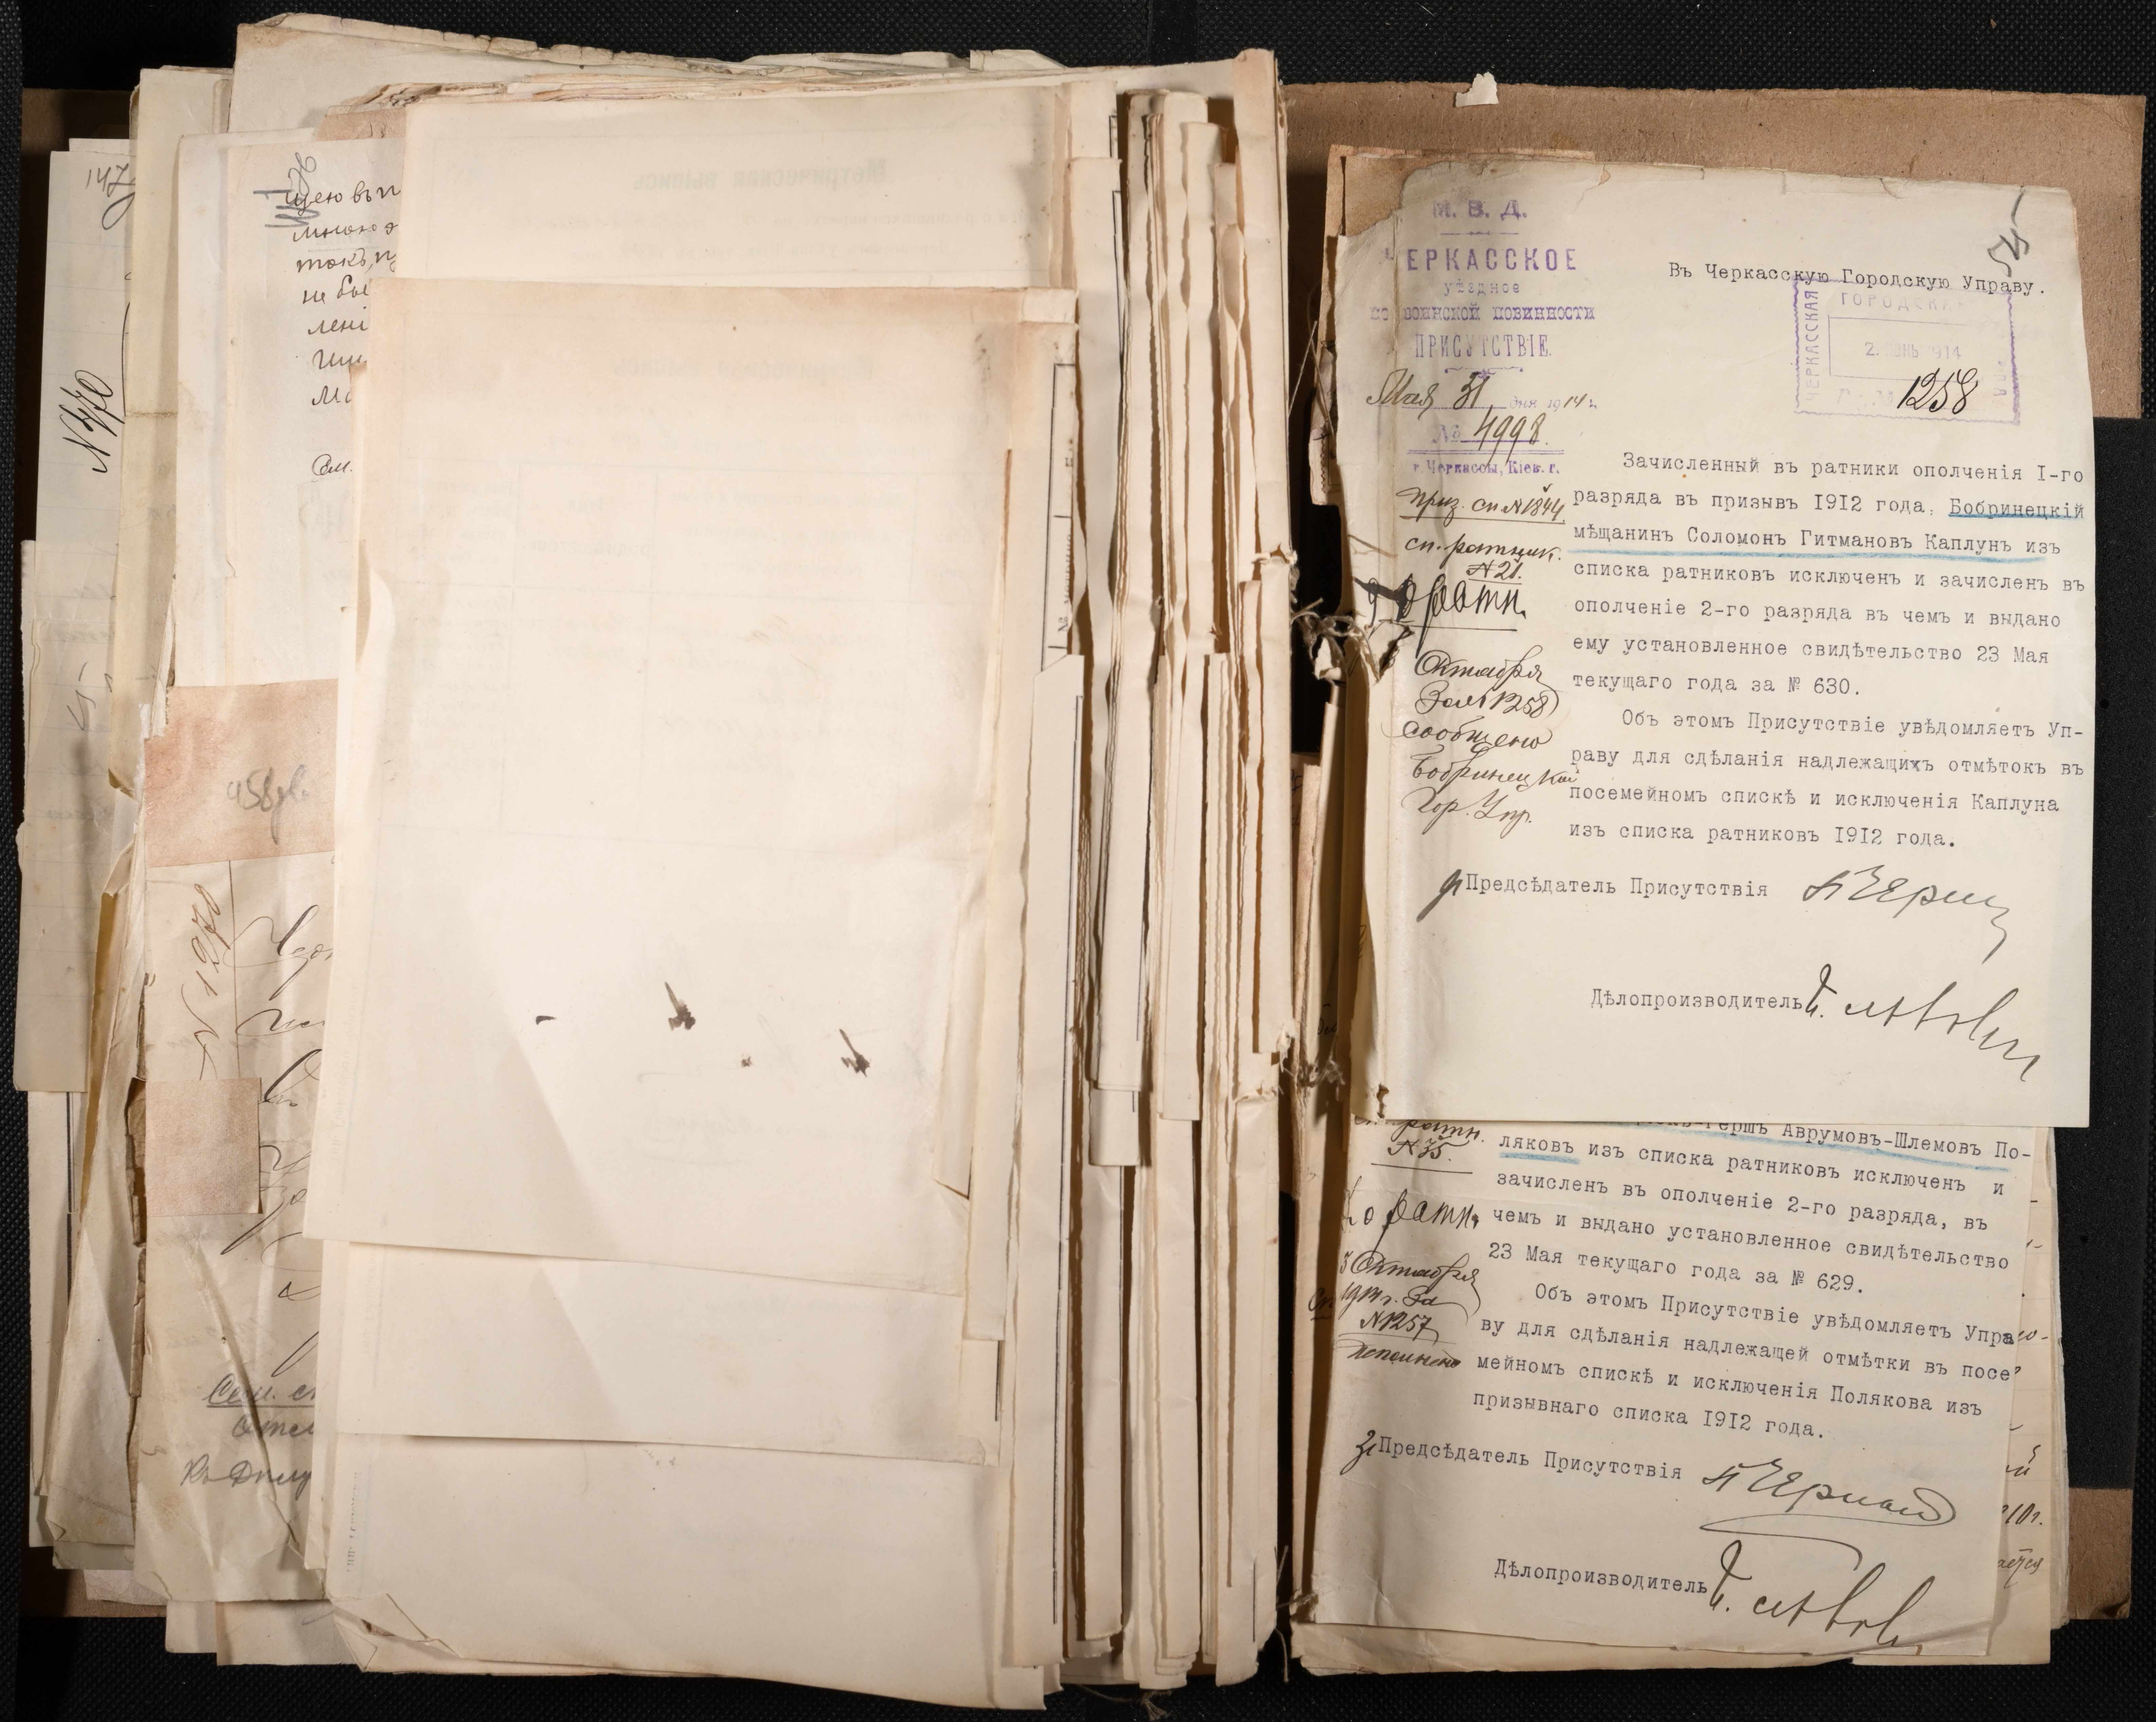 147
N 470
щею въ п
мною э
токъ, п
не бы
лені
Сем.
458
N 1270
Метрическая выпись
М. В. Д.
ЧЕРКАССКОЕ
уѣздное
по воинской повинности
ПРИСУТСТВІЕ.
Мая 31 дня 1914 г.
№ 4998.
г. Черкассы, Кіев. г.
Въ Черкасскую Городскую Управу.
ЧЕРКАССКАЯ
ГОРОДСКАЯ
1914
1258
приз. сп N 1844
сп. ратник.
N 21.
ратн.
Октября
За N 1258
сообщено
Бобринецкой
Гор. Упр.
Зачисленный въ ратники ополченія I-го
разряда въ призывъ 1912 года, Бобринецкій
мѣщанинъ Соломонъ Гитмановъ Каплунъ изъ
списка ратниковъ исключенъ и зачисленъ въ
ополченіе 2-го разряда въ чемъ и выдано
ему установленное свидѣтельство 23 Мая
текущаго года за № 630.
Объ этомъ Присутствіе увѣдомляетъ Уп-
раву для сдѣланія надлежащихъ отмѣтокъ въ
посемейномъ спискѣ и исключенія Каплуна
изъ списка ратниковъ 1912 года.
Предсѣдатель Присутствія
Дѣлопроизводитель
ратн.
N 35.
ратн.
Октября
1914 г. За
N 1257
исполнено
-Гершъ Аврумовъ-Шлемовъ По-
ляковъ изъ списка ратниковъ исключенъ и
зачисленъ въ ополченіе 2-го разряда, въ
чемъ и выдано установленное свидѣтельство
23 Мая текущаго года за № 629.
Объ этомъ Присутствіе увѣдомляетъ Упра
ву для сдѣланія надлежащей отмѣтки въ посе
мейномъ спискѣ и исключенія Полякова изъ
призывнаго списка 1912 года.
Предсѣдатель Присутствія
Дѣлопроизводитель